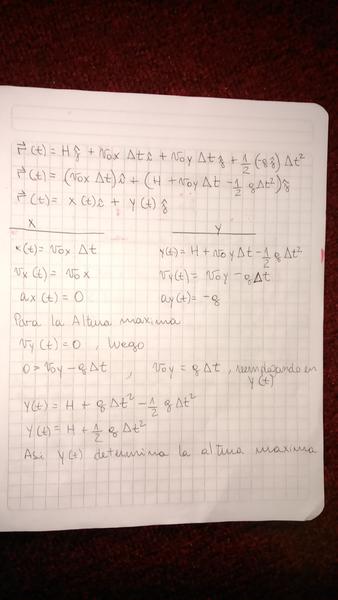 r⃗(t) = Hĵ + Vox Δt î + Voy Δt ĵ + 1/2 (-gĵ) Δt²
r⃗(t) = (Vox Δt) î + (H + Voy Δt - 1/2 gΔt²) ĵ
r⃗(t) = x(t) î + y(t) ĵ
x y
x(t) = Vox Δt y(t) = H + Voy Δt - 1/2 g Δt²
Vx(t) = Vox Vy(t) = Voy - gΔt
ax(t) = 0 ay(t) = -g
Para la Altura maxima
Vy(t) = 0, luego
0 = Voy - gΔt, Voy = gΔt, reemplazando en
y(t)
Y(t) = H + g Δt² - 1/2 g Δt²
Y(t) = H + 1/2 g Δt²
Asi Y(t) determina la altura maxima